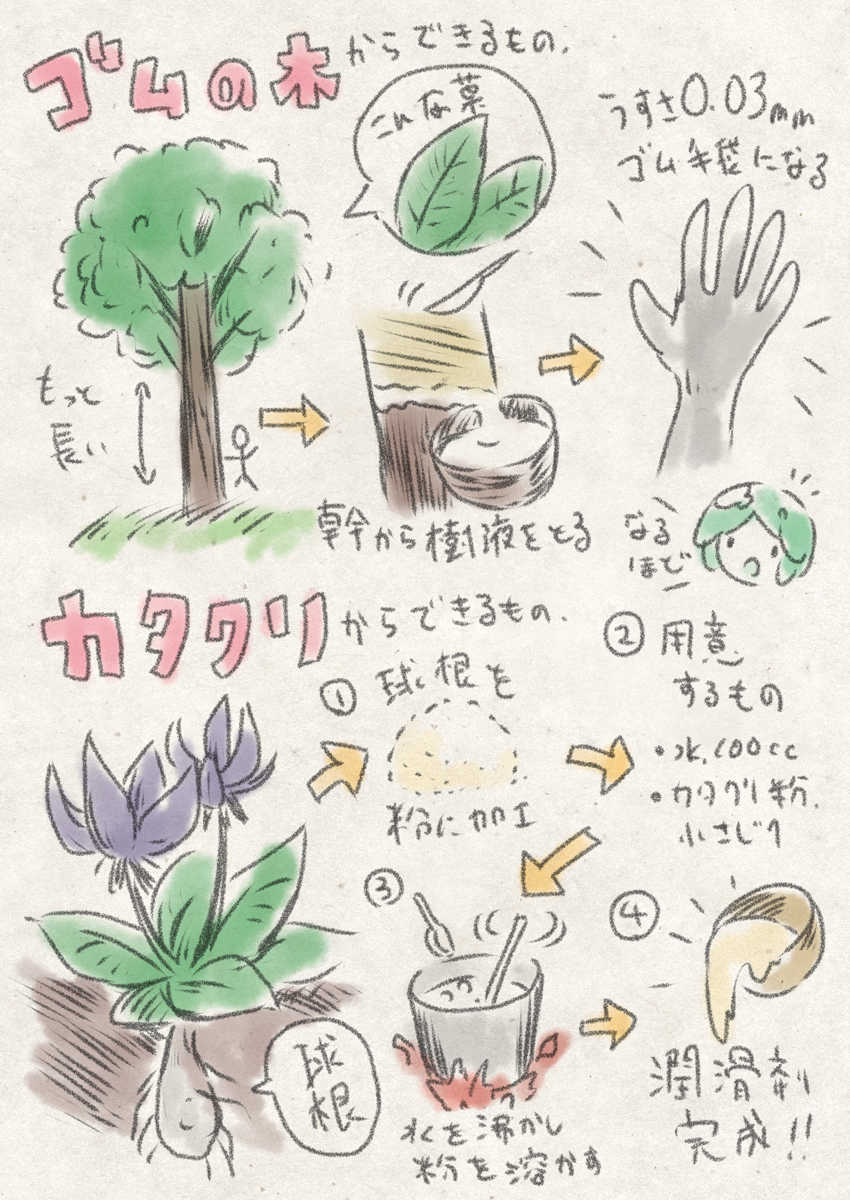 ゴムの木からできるもの.
こんな葉
うすさ0.03mm
ゴム手袋になる
もっと
長い
幹から樹液をとる
なる
ほど
カタクリからできるもの.
① 球根を
粉に加工
② 用意
するもの
・水.100cc
・カタクリ粉.
小さじ1
③
水を沸かし
粉を溶かす
④
潤滑剤
完成!!
球
根